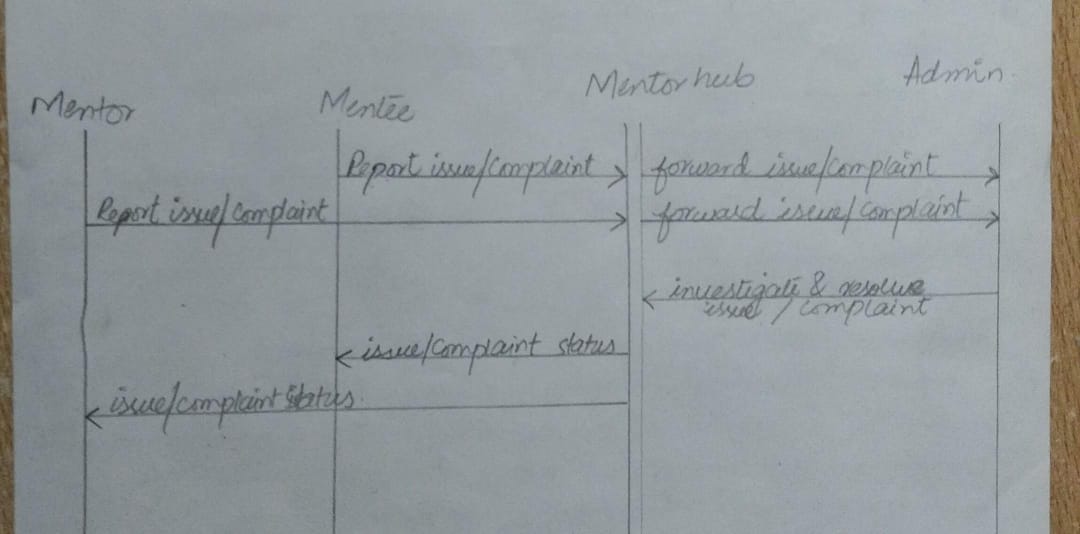 Mentor
Mentee
Mentorhub
Admin.
Report issue/complaint
forward issue/complaint
Report issue/complaint
forward issue/complaint
investigate & resolve
issue / complaint
issue/complaint status
issue/complaint status.